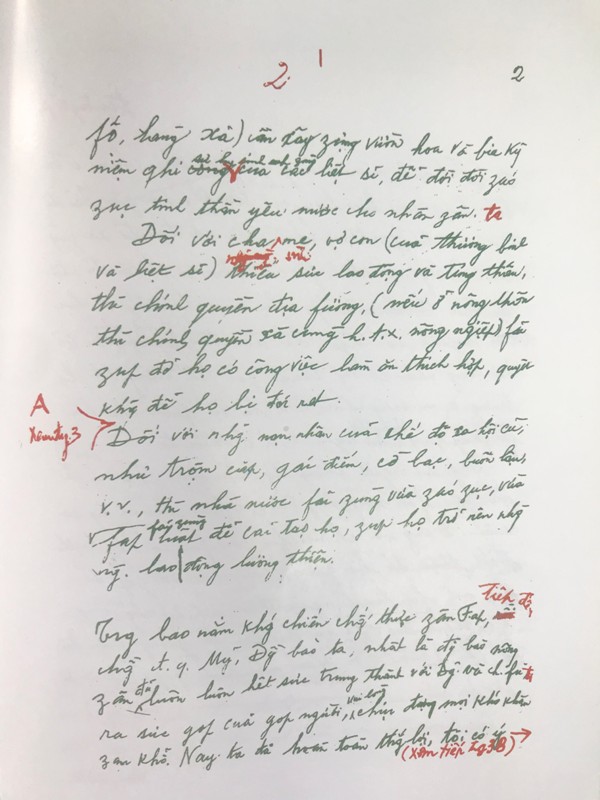 2
2
fố, hang xã) cần xây zựng vườn hoa và bia kỷ
sự hy sinh anh zũng
niệm ghi công của các liệt sĩ, để đời đời záo
zục tinh thần yêu nước cho nhân zân ta
Đối với cha mẹ, vợ con (của thương binh
và liệt sĩ) thiếu sức lao động và túng thiếu,
thì chính quyền địa fương, (nếu ở nông thôn
thì chính quyền xã cùng h.t.x. nông nghiệp) fải
zúp đỡ họ có công việc làm ăn thích hợp, quyết
không để họ bị đói rét.
A
Đối với nhg nạn nhân của chế độ xã hội cũ,
như trộm cắp, gái điếm, cờ bạc, buôn lậu,
v.v., thì nhà nước fải zùng vừa záo zục, vừa
fải zùng
fap luật để cải tạo họ, zúp họ trở nên nhg
ng. lao động lương thiện.
Trg bao năm khg chiến chg thực zân Fap, tiếp đó
chg đ. q. Mỹ, Đg bào ta, nhất là đg bào nông
zân đã luôn luôn hết sức trung thành với Đg và ch. fủ ta
ra sức góp của góp người, vui lòng chịu đựng mọi khó khăn
zan khổ. Nay ta đã hoàn toàn thg lợi, tôi có ý
(xem tiếp tg 3B)